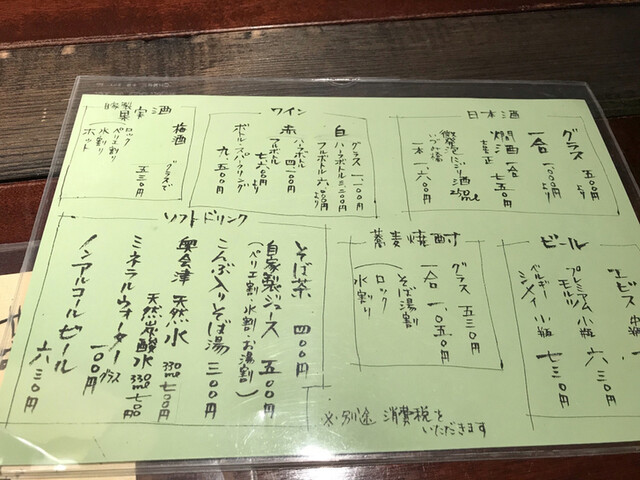 日本酒
グラス 五〇〇円より
一合 一、〇〇〇円より
燗酒 一合 七五〇円
微発泡にごり酒 250ml
一本 一、六〇〇円
ワイン
白 グラス 一、一〇〇円
ハーフボトル 三、二〇〇円
フルボトル 六、〇〇〇円より
赤 ハーフボトル 四、一〇〇円
フルボトル 七、六〇〇円より
ボトル・スパークリング 九、五〇〇円
自家製果実酒
梅酒 グラスで 五三〇円
ロック
ペリエ割り
水割り
ホット
ビール
ヱビス 中瓶
プレミアムモルツ 小瓶 六三〇円
ベルギー シメイ 小瓶 七三〇円
蕎麦焼酎
グラス 五三〇円
一合 一、〇五〇円
そば湯割り
ロック
水割り
ソフトドリンク
そば茶 四〇〇円
自家製ジュース 五〇〇円
(ペリエ割・水割・お湯割)
こんぶ入りそば湯 三〇〇円
奥会津 天然水 330ml 七〇〇円
天然炭酸水 330ml 七〇〇円
ミネラルウォーター グラス 一〇〇円
ノンアルコールビール 六三〇円
※別途 消費税をいただきます